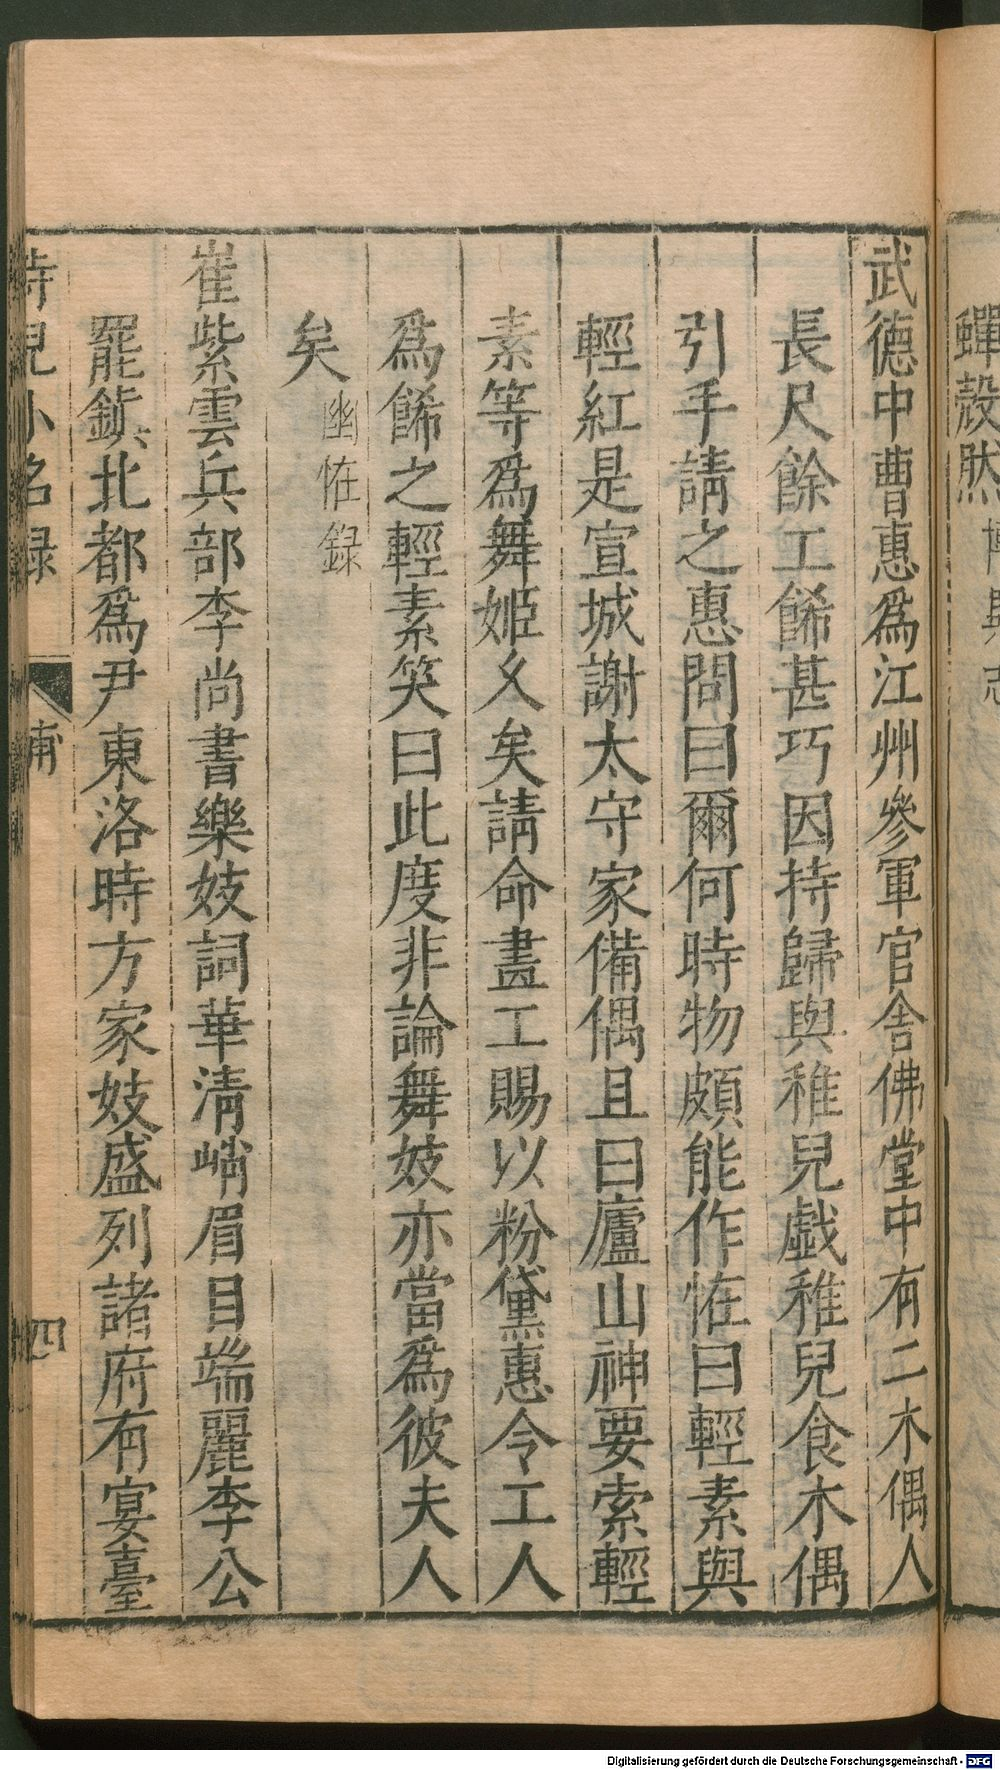 蟬殻然
武德中曹惠爲江州參軍官舍佛堂中有二木偶人
長尺餘工餙甚巧因持歸與稚兒戱稚兒食木偶
引手請之惠問曰爾何時物頗能作恠曰輕素與
輕紅是宣城謝太守家備偶且曰廬山神要索輕
素等爲舞姬乆矣請命畫工賜以粉黛惠令工人
爲餙之輕素笑曰此度非論舞妓亦當爲彼夫人
矣 幽恠録
崔紫雲兵部李尚書樂妓詞華清峭眉目端麗李公
罷鎮北都爲尹東洛時方家妓盛列諸府有宴臺
侍兒小名録
四
Digitalisierung gefördert durch die Deutsche Forschungsgemeinschaft - DFG